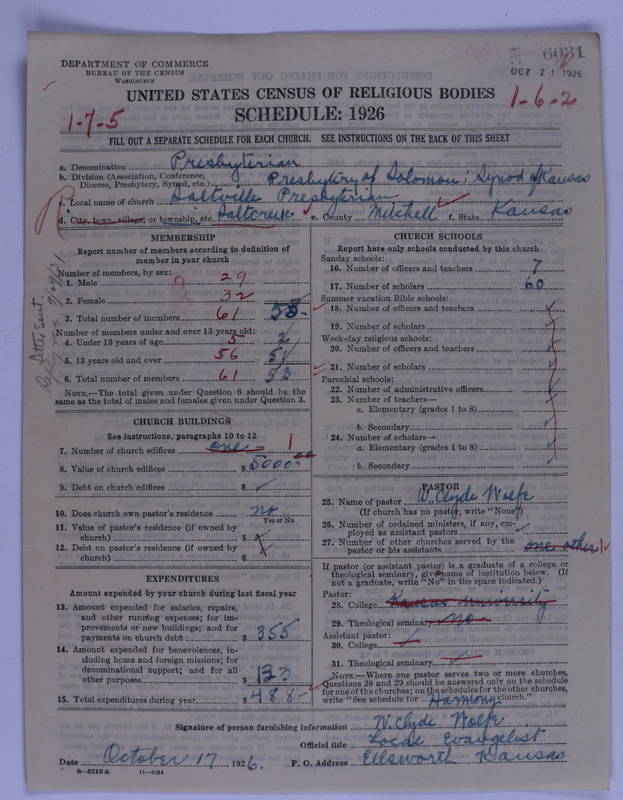 6031
OCT 21 1926
DEPARTMENT OF COMMERCE
BUREAU OF THE CENSUS
WASHINGTON
UNITED STATES CENSUS OF RELIGIOUS BODIES
1-7-5 SCHEDULE: 1926 1-6-2
FILL OUT A SEPARATE SCHEDULE FOR EACH CHURCH. SEE INSTRUCTIONS ON THE BACK OF THIS SHEET
a. Denomination Presbyterian
b. Division (Association, Conference, Diocese, Presbytery, Synod, etc.) Presbytery of Solomon; Synod of Kansas
c. Local name of church Saltville Presbyterian
d. City, town, village, or township, etc. Saltcreek e. County Mitchell f. State Kansas
MEMBERSHIP
Report number of members according to definition of
member in your church
Number of members, by sex:
1. Male 29
2. Female 32
3. Total number of members 61 53
Number of members under and over 13 years old:
4. Under 13 years of age 5 2
5. 13 years old and over 56 51
6. Total number of members 61 53
NOTE.—The total given under Question 6 should be
the same as the total of males and females given under Question 3.
CHURCH BUILDINGS
See instructions, paragraphs 10 to 12
7. Number of church edifices one 1
8. Value of church edifices $ 5000.00
9. Debt on church edifices $
10. Does church own pastor's residence No
Yes or No
11. Value of pastor's residence (if owned by
church) $
12. Debt on pastor's residence (if owned by
church) $
EXPENDITURES
Amount expended by your church during last fiscal year
13. Amount expended for salaries, repairs,
and other running expenses; for im-
provements or new buildings; and for
payments on church debt $ 355
14. Amount expended for benevolences, in-
cluding home and foreign missions; for
denominational support; and for all
other purposes $ 133
15. Total expenditures during year $ 488-
CHURCH SCHOOLS
Report here only schools conducted by this church
Sunday schools:
16. Number of officers and teachers 7
17. Number of scholars 60
Summer vacation Bible schools:
18. Number of officers and teachers
19. Number of scholars
Week-day religious schools:
20. Number of officers and teachers
21. Number of scholars
Parochial schools:
22. Number of administrative officers
23. Number of teachers—
a. Elementary (grades 1 to 8)
b. Secondary
24. Number of scholars—
a. Elementary (grades 1 to 8)
b. Secondary
PASTOR
25. Name of pastor W. Clyde Wolfe
(If church has no pastor, write "None")
26. Number of ordained ministers, if any, em-
ployed as assistant pastors
27. Number of other churches served by the
pastor or his assistants one other 1
If pastor (or assistant pastor) is a graduate of a college or
theological seminary, give name of institution below. (If
not a graduate, write "No" in the space indicated.)
Pastor:
28. College Kansas University
29. Theological seminary No
Assistant pastor:
30. College
31. Theological seminary
NOTE.—Where one pastor serves two or more churches,
Questions 28 and 29 should be answered only on the schedule
for one of the churches; on the schedules for the other churches,
write "See schedule for Harmony church."
Signature of person furnishing information W. Clyde Wolfe
Official title Local Evangelist
Date October 17, 1926. P. O. Address Ellsworth Kansas
8-5518a 11-9184